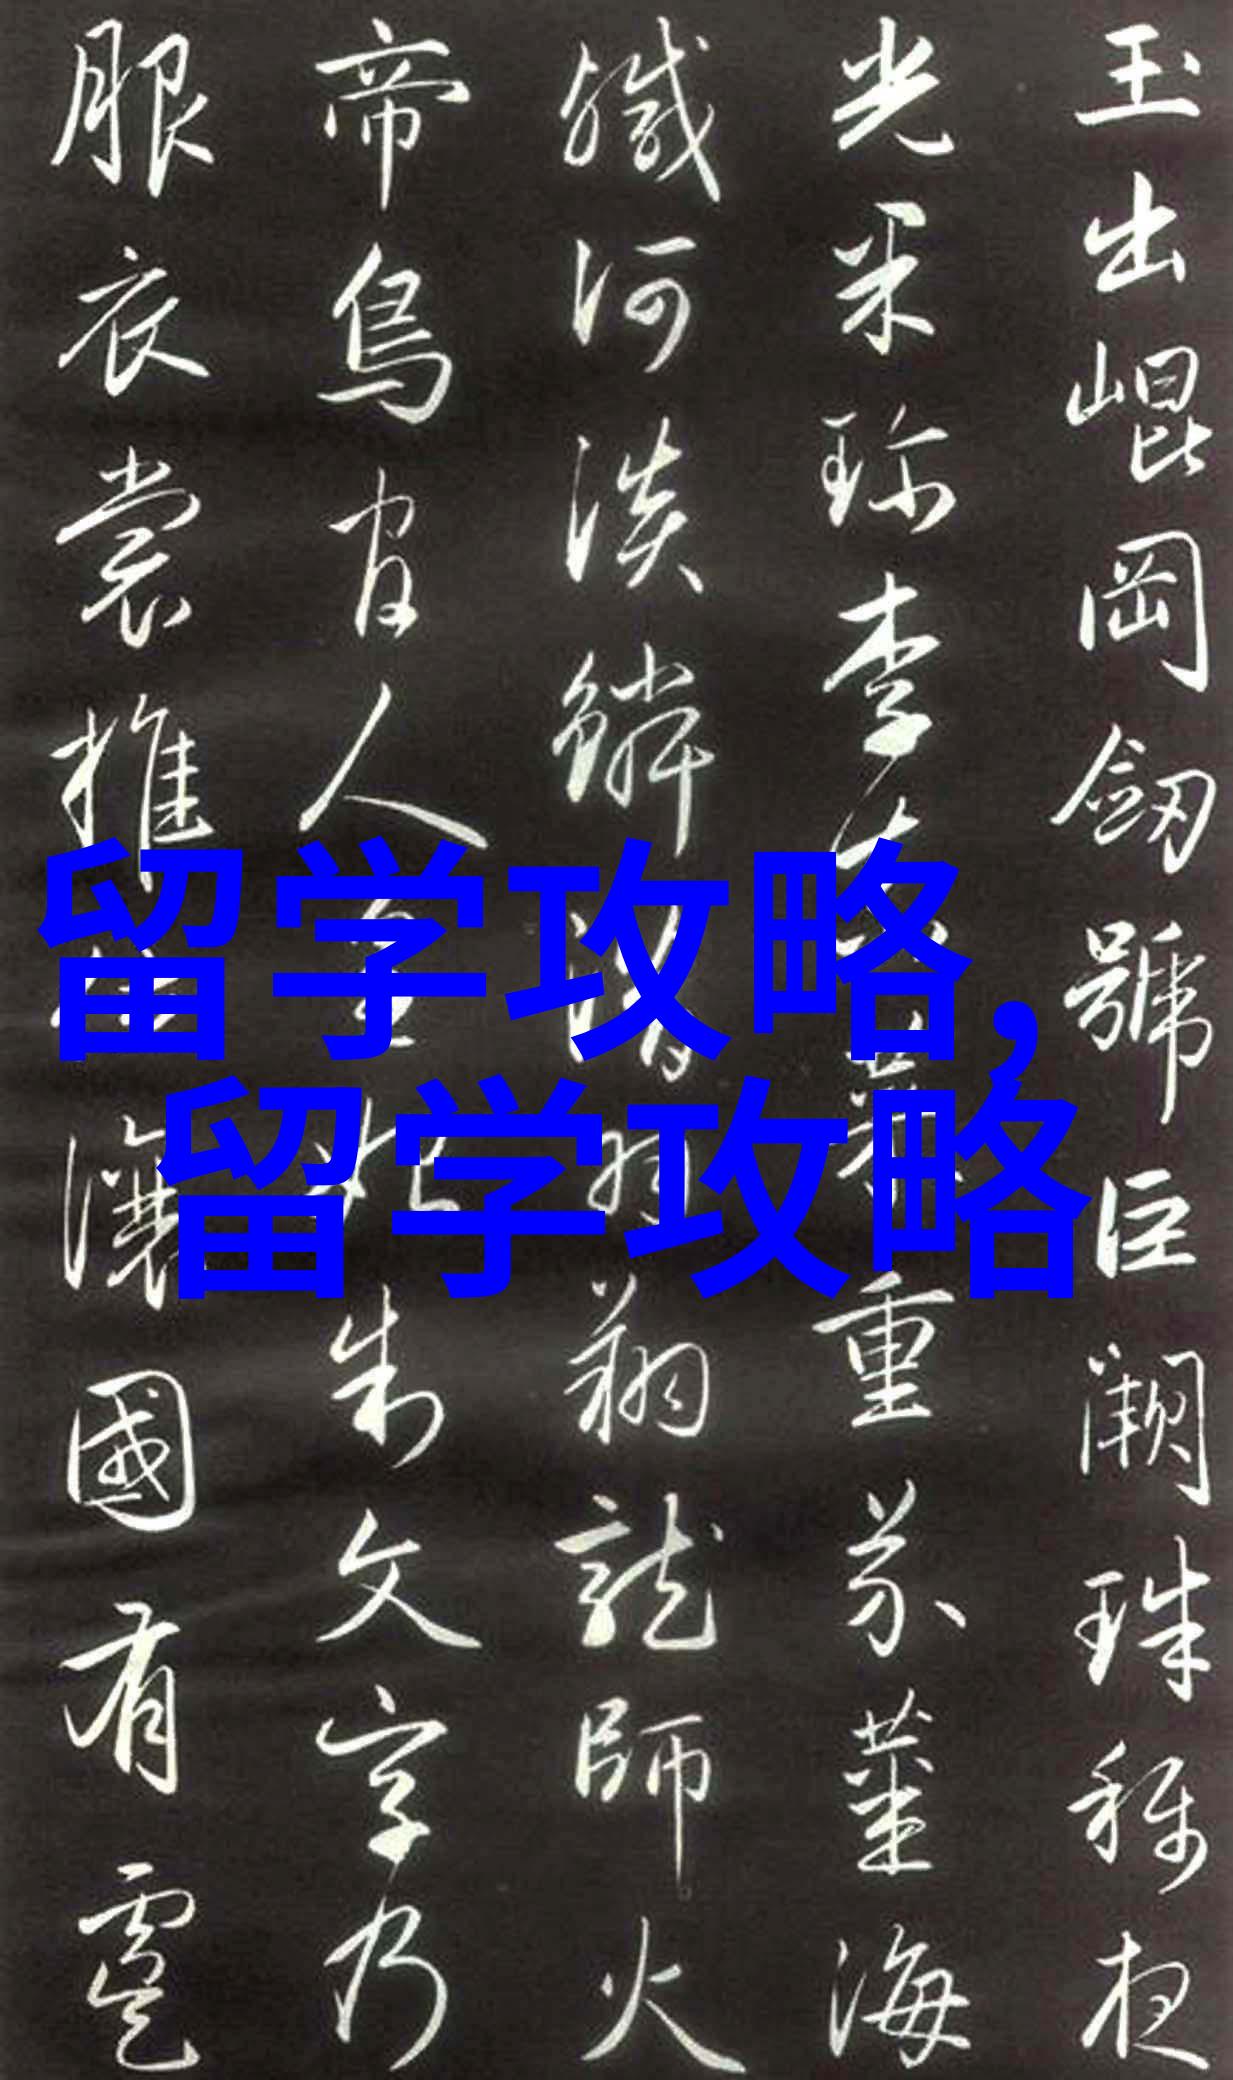 玉出崐岡劔號巨闕珠称夜
光果珍李柰菜重芥薑海
鹹河淡鱗潛羽翔龍師火
帝鳥官人皇始制文字乃
服衣裳推位讓國有虞
留学攻略,
留学攻略